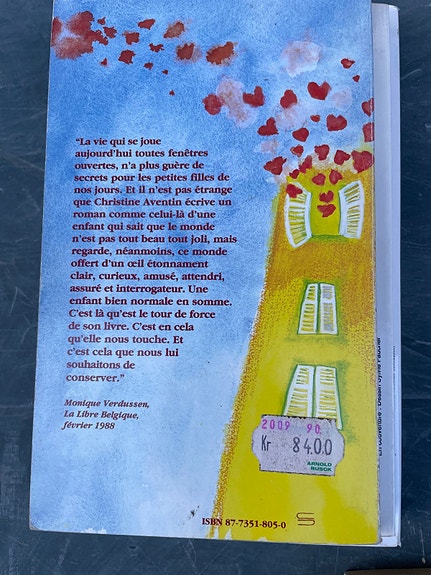 "La vie qui se joue
aujourd'hui toutes fenêtres
ouvertes, n'a plus guère de
secrets pour les petites filles de
nos jours. Et il n'est pas étrange
que Christine Aventin écrive un
roman comme celui-là d'une
enfant qui sait que le monde
n'est pas tout beau tout joli, mais
regarde, néanmoins, ce monde
offert d'un œil étonnament
clair, curieux, amusé, attendri,
assuré et interrogateur. Une
enfant bien normale en somme.
C'est là qu'est le tour de force
de son livre. C'est en cela
qu'elle nous touche. Et
c'est cela que nous lui
souhaitons de
conserver."
Monique Verdussen,
La Libre Belgique,
février 1988
2009 90.
Kr 84.00
ARNOLD
BUSCK
ISBN 87-7351-805-0